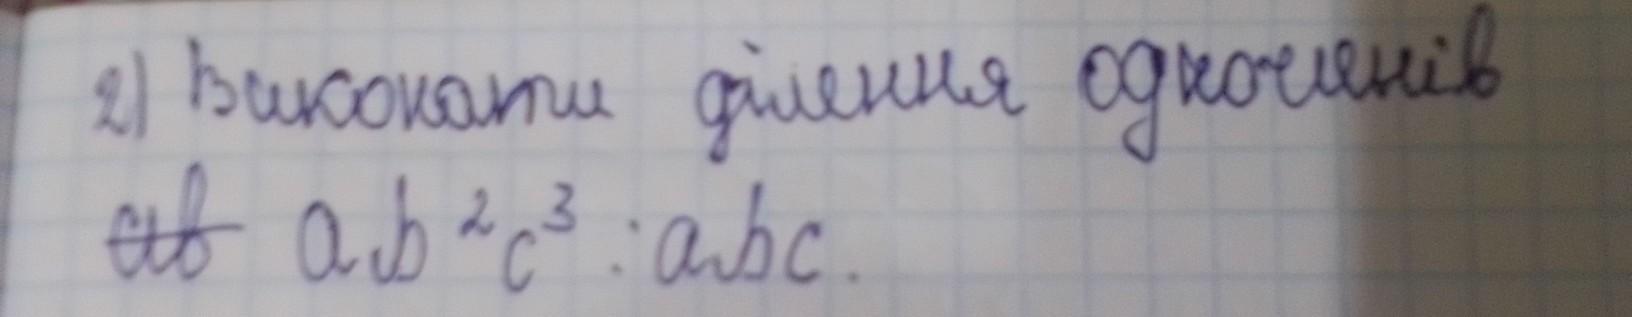 2) Виконати ділення одночленів
ab ab²c³ : abc.